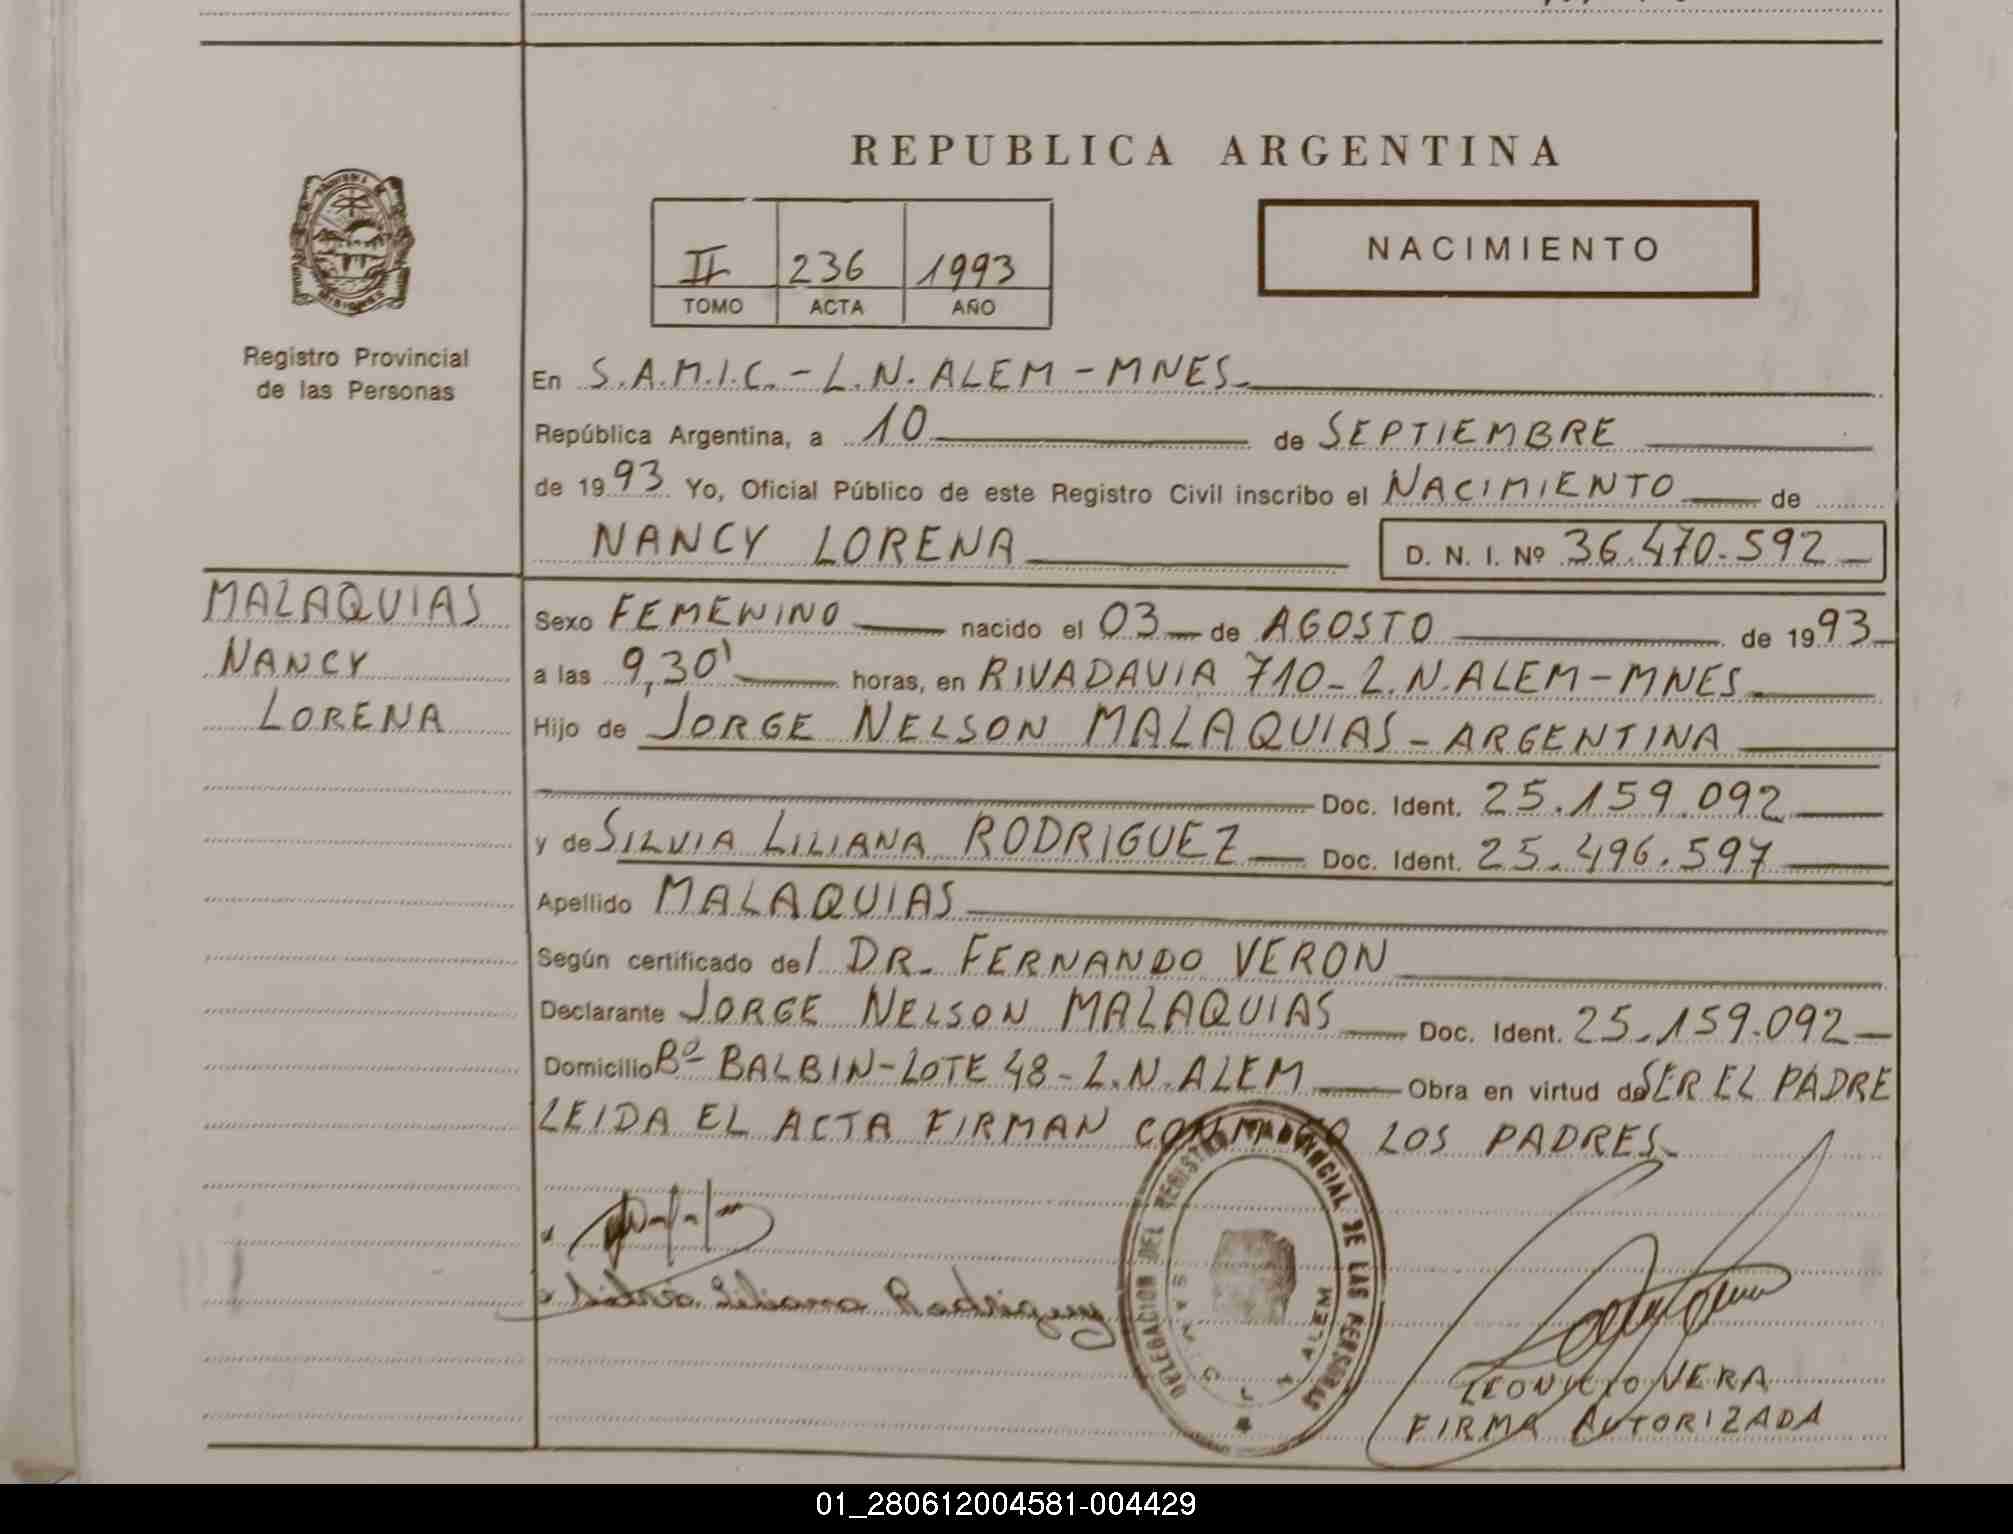 REPUBLICA ARGENTINA
II 236 1993
TOMO ACTA AÑO
NACIMIENTO
Registro Provincial
de las Personas
En S.A.M.I.C. - L.N. ALEM - MNES.
República Argentina, a 10 de SEPTIEMBRE
de 1993 Yo, Oficial Público de este Registro Civil inscribo el NACIMIENTO de
NANCY LORENA D. N. I. Nº 36.470.592
MALAQUIAS
NANCY
LORENA
Sexo FEMENINO nacido el 03 de AGOSTO de 1993
a las 9,30' horas, en RIVADAVIA 710 - L.N. ALEM - MNES
Hijo de JORGE NELSON MALAQUIAS - ARGENTINA
Doc. Ident. 25.159.092
y de SILVIA LILIANA RODRIGUEZ Doc. Ident. 25.496.597
Apellido MALAQUIAS
Según certificado del DR. FERNANDO VERON
Declarante JORGE NELSON MALAQUIAS Doc. Ident. 25.159.092
Domicilio Bº BALBIN - LOTE 48 - L.N. ALEM Obra en virtud de SER EL PADRE
LEIDA EL ACTA FIRMAN CONMIGO LOS PADRES
DELEGACION DEL REGISTRO PROVINCIAL DE LAS PERSONAS
ALEM
VERA
FIRMA AUTORIZADA
01_280612004581-004429